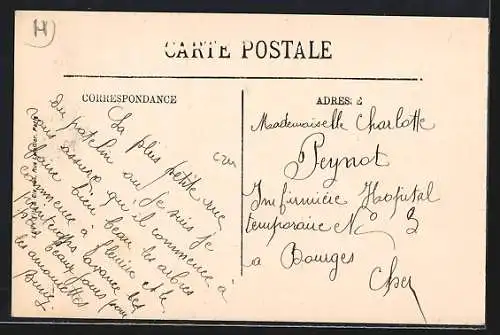 H
CARTE POSTALE
CORRESPONDANCE
ADRESSE
La plus petite rue
du patelin ou je suis je
vous assure qu'il commence à
faire bien beau les arbres
commence à fleurir et le
printemps s'avance des
beaux jours pour
les amourettes
Mademaiselle Charlotte
Peynot
Infirmière Hopital
temporaire N° 3
La Bourges
Cher